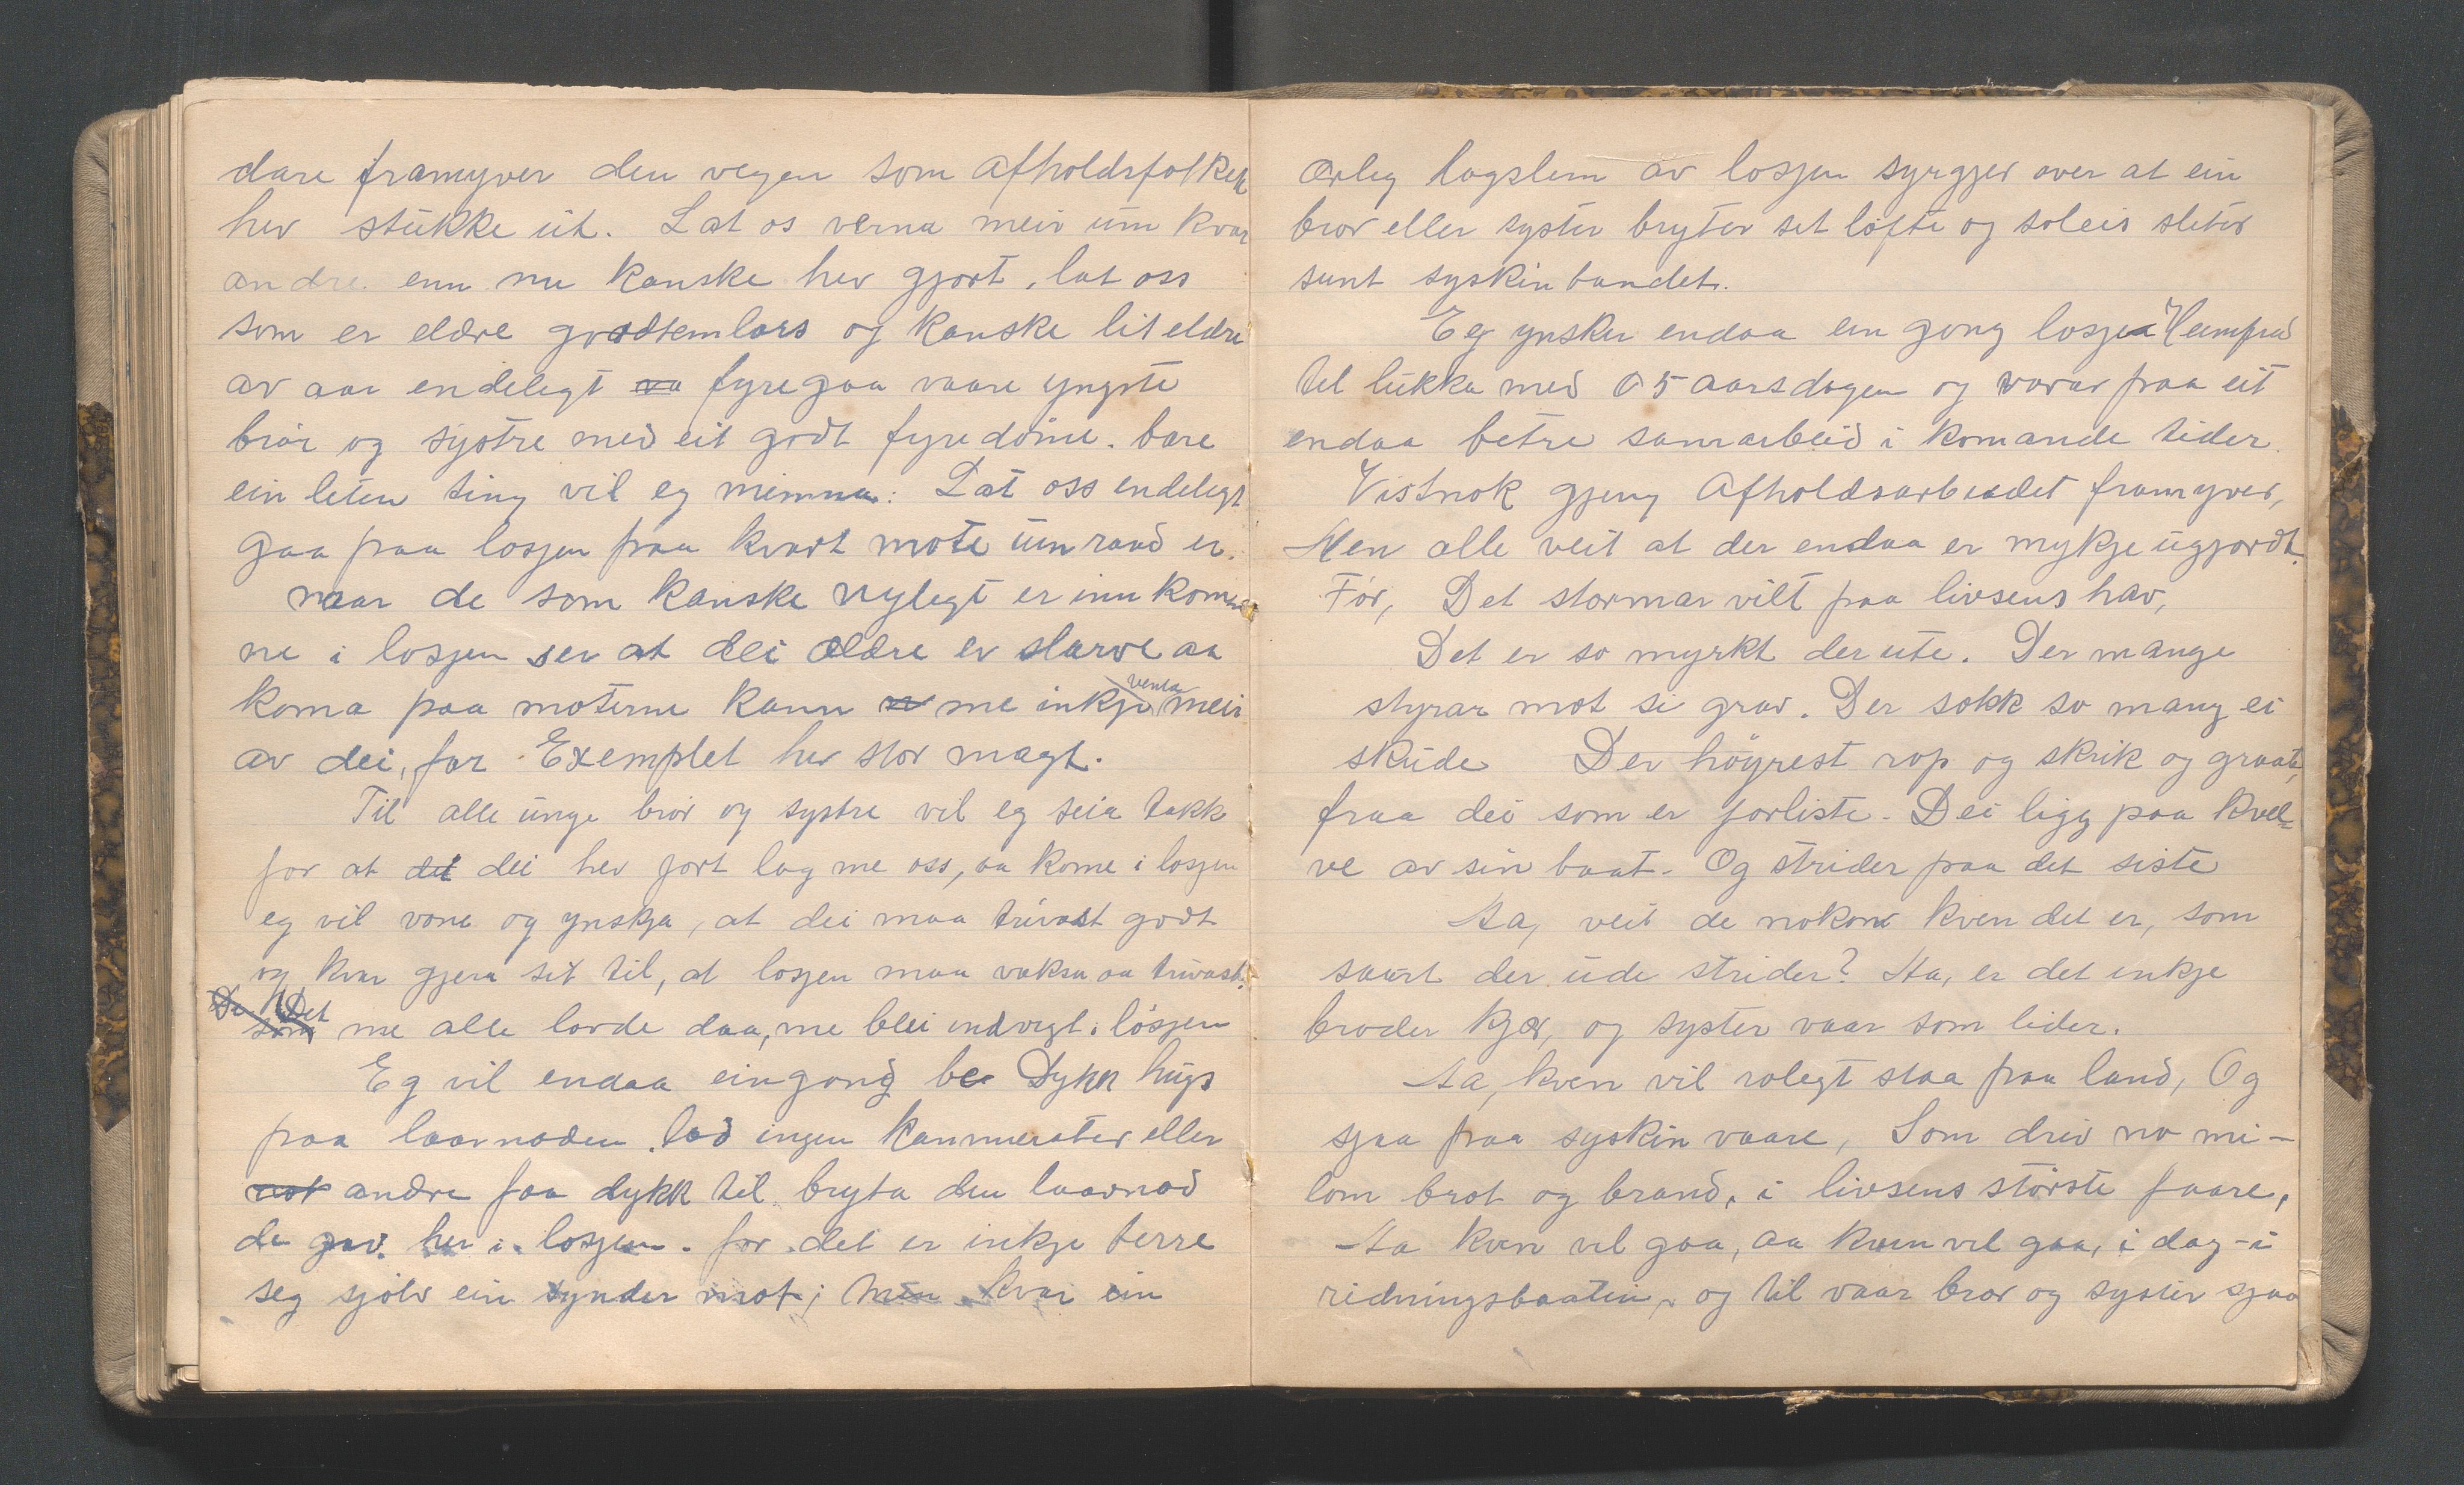 dare framyver den vegen som afholdsfolket
hev stukke ut. Lat os verna meir um kvar
andre enn me kanske hev gjort, lat oss
som er eldre goodtemlars og kanske lit eldre
av aar endelegt va fyregaa vaare yngste
brör og systre med eit godt fyredöme. bare
ein leten ting vil eg minna: Lat oss endelegt
gaa paa losjen paa kvart möte um raad er.
naar de som kanske nylegt er inn kom-
ne i losjen ser at dei ældre er slarve aa
koma paa möterne kann me inkje venta meir
av dei, for Exemplet hev stor magt.
Til alle unge brör og systre vil eg seia takk
for at det dei hev jort lag me oss, aa kome i losjen
eg vil vone og ynskja, at dei maa trivast godt
og kvar gjera sit til, at losjen maa vaksa aa trivast.
De som Det me alle lovde daa, me blei indvigt i losjen
Eg vil endaa eingong be Dykk hugs
paa laavnaden. lad ingen kammerater eller
nok andre faa dykk til bryta den laavnad
de gav her i losjen. for det er inkje berre
seg sjölv ein synder mot; Men kvar ein
ærleg lagslem av losjen syrgjer over at ein
bror eller syster bryter set löfte og soleis sleter
sunt syskinbandet.
Eg ynsker endaa ein gong losjen Heimfred
til lukka med 05 aarsdagen og vonar paa eit
endaa betre samarbeid i komande tider.
Vistnok gjeng Afholdsarbeidet framyver,
Men alle veit at der endaa er mykje ugjordt.
För, Det stormar vilt paa livsens hav,
Det er so myrkt der ute. Der mange
styrar mot si grav. Der sökk so mang ei
skude Der höyrest rop og skrik og graat,
fraa dei som er forliste. Dei ligg paa kvel-
ve av sin baat. Og strider paa det siste
Aa, veit de nokon kven det er, som
saart der ude strider? Aa, er det inkje
broder kjær, og syster vaar som lider.
Aa, kven vil rolegt staa paa land, Og
sjaa paa syskin vaare, Som driv no mi-
lom brot og brand, i livsens störste faare,
Aa kven vil gaa, aa kven vil gaa, i dag i
redningsbaaten, og til vaar bror og syster sjaa